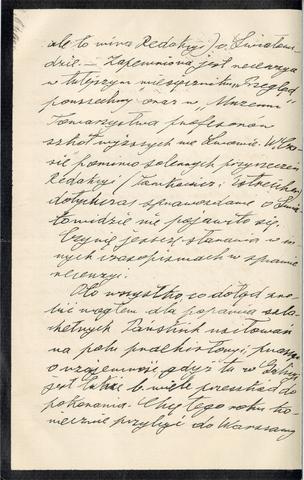 ale to wina Redakcyj) o. Światowi-
dzie. — Zapewniona jest recenzya
w tutejszym miesięczniku „Przegląd
powszechny" oraz w Muzeum
Towarzystwa profesorów
szkół wyższych we Lwowie. W Cza-
sie pomimo solennych przyrzeczeń
Redakcyi (Jankowicz i Estreicher)
dotychczas sprawozdanie o Świa-
towidzie nie pojawiło się.
Czynię jeszcze starania w in-
nych czasopismach w sprawie
recenzyi.
Oto wszystko, co dotąd zro-
bić mogłem dla poparcia szla-
chetnych Pańskich usiłowań
na polu prehistoryi, proszę
o wzajemność gdyż tu w Galicyi
jest także b. wiele przeszkód do
pokonania. Chcę tego roku ko-
niecznie przybyć do Warszawy